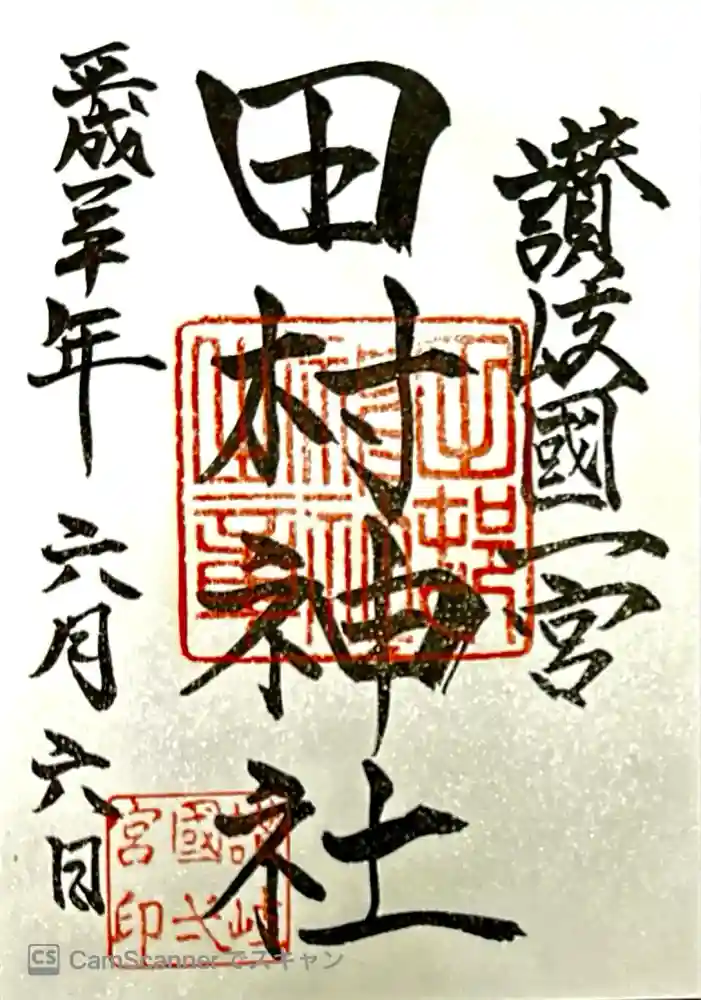 讃岐國一宮
田村神社
平成三十年 六月六日
讃岐
國弌
宮印
CS CamScannerでスキャン